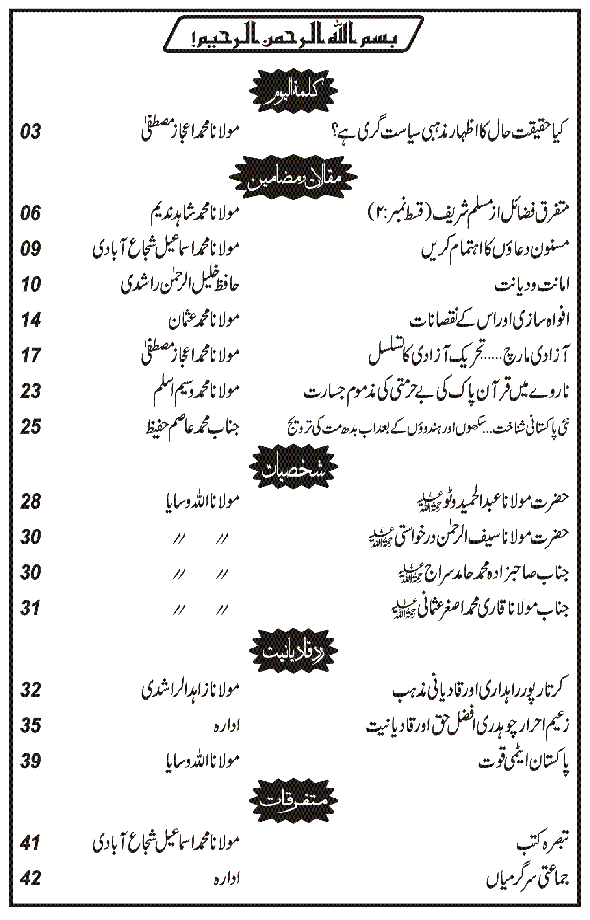 بسم اللہ الرحمن الرحیم!
کلمۃ الیوم
کیا حقیقت حال کا اظہار مذہبی سیاست گری ہے؟ مولانا محمد اعجاز مصطفیٰ 03
مقالات و مضامین
متفرق فضائل از مسلم شریف (قسط نمبر:۲) مولانا محمد شاہد ندیم 06
مسنون دعاؤں کا اہتمام کریں مولانا محمد اسماعیل شجاع آبادی 09
امانت و دیانت حافظ خلیل الرحمٰن راشدی 10
افواہ سازی اور اس کے نقصانات مولانا محمد عثمان 14
آزادی مارچ.....تحریک آزادی کا تسلسل مولانا محمد اعجاز مصطفیٰ 17
ناروے میں قرآن پاک کی بے حرمتی کی مذموم جسارت مولانا محمد وسیم اسلم 23
نئی پاکستانی شناخت...سکھوں اور ہندوؤں کے بعد اب بدھ مت کی ترویج جناب محمد عاصم حفیظ 25
شخصیات
حضرت مولانا عبدالحمید وٹو رحمۃ اللہ علیہ مولانا اللہ وسایا 28
حضرت مولانا سیف الرحمٰن درخواستی رحمۃ اللہ علیہ // // 30
جناب صاحبزادہ محمد حامد سراج رحمۃ اللہ علیہ // // 30
جناب مولانا قاری محمد اصغر عثمانی رحمۃ اللہ علیہ // // 31
رد قادیانیت
کرتارپور راہداری اور قادیانی مذہب مولانا زاہد الراشدی 32
زعیم احرار چوہدری افضل حق اور قادیانیت ادارہ 35
پاکستان ایٹمی قوت مولانا اللہ وسایا 39
متفرقات
تبصرہ کتب مولانا محمد اسماعیل شجاع آبادی 41
جماعتی سرگرمیاں ادارہ 42